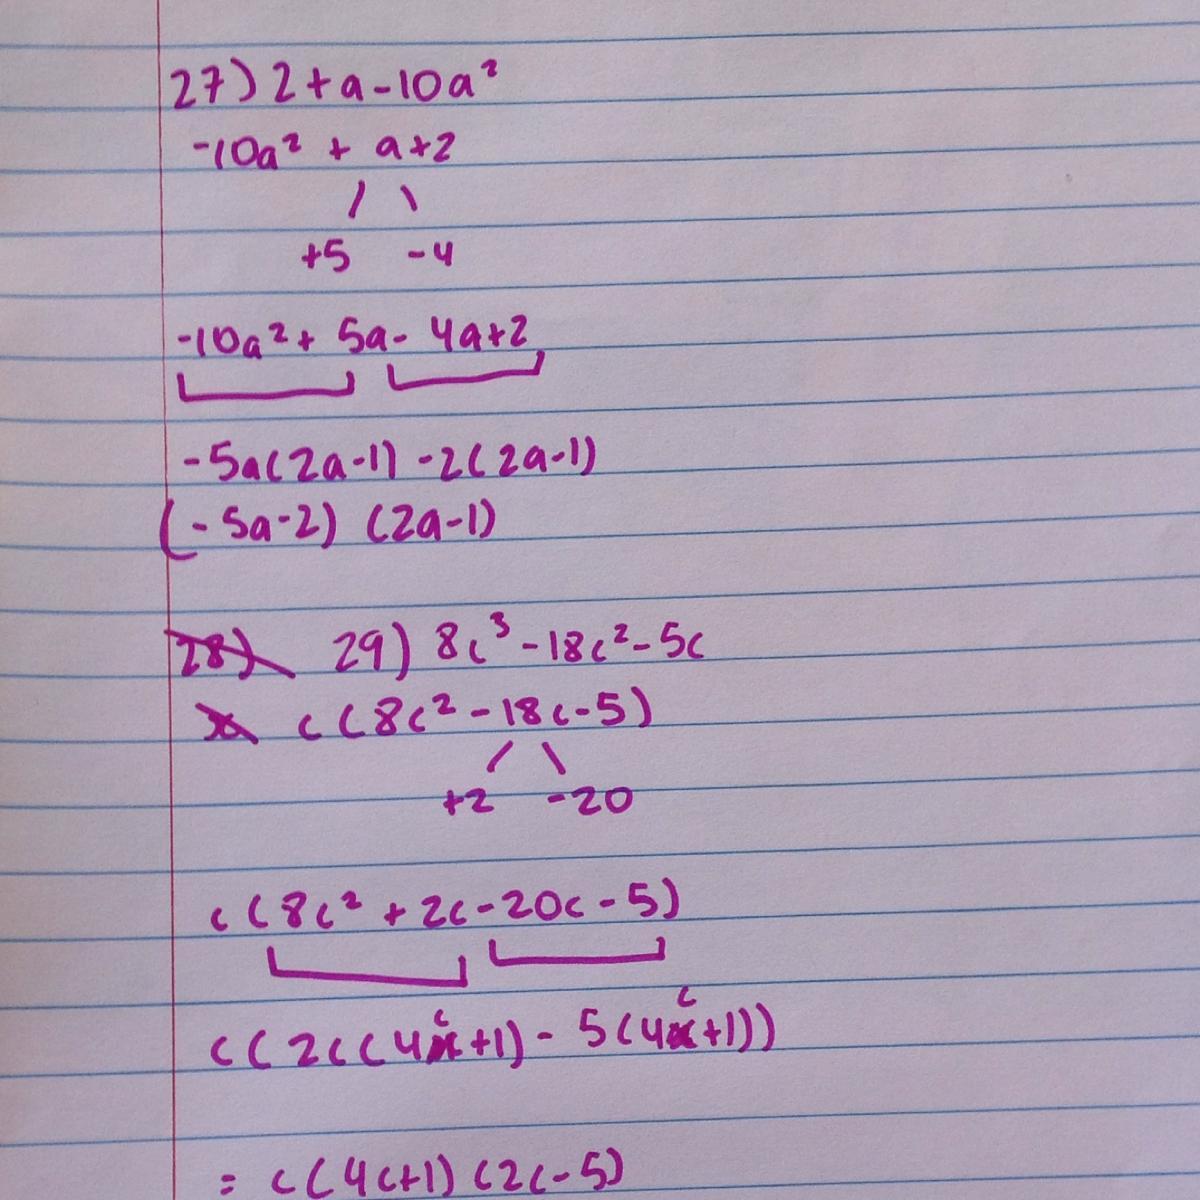 27) 2+a-10a²
-10a² + a+2
+5 -4
-10a² + 5a- 4a+2
-5a(2a-1) -2(2a-1)
(-5a-2) (2a-1)
28) 29) 8c³-18c²-5c
c(8c²-18c-5)
+2 -20
c(8c² + 2c-20c-5)
c(2c(4c+1) - 5(4c+1))
= c(4c+1)(2c-5)